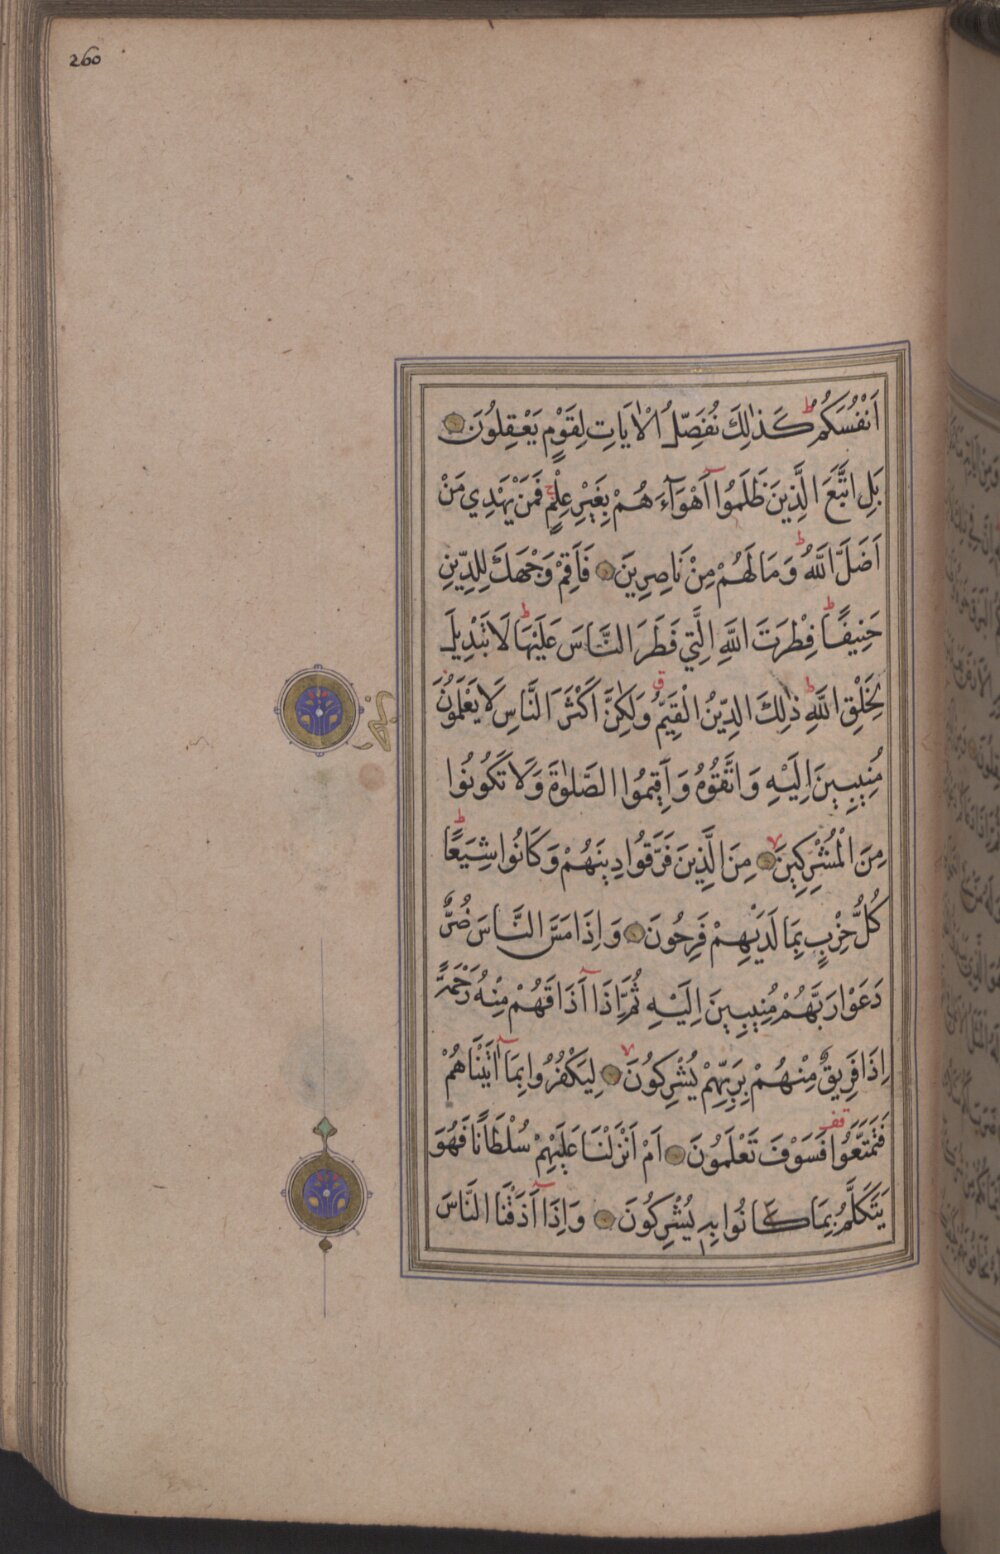 260
اَنْفُسَكُمْ ط كَذٰلِكَ نُفَصِّلُ الْاٰيَاتِ لِقَوْمٍ يَعْقِلُونَ
بَلِ اتَّبَعَ الَّذِينَ ظَلَمُوٓا اَهْوَآءَهُمْ بِغَيْرِ عِلْمٍ ج فَمَنْ يَهْدِي مَنْ
اَضَلَّ اللَّهُ ط وَمَا لَهُمْ مِنْ نَاصِرِينَ فَاَقِمْ وَجْهَكَ لِلدِّينِ
حَنِيفًا ط فِطْرَتَ اللَّهِ الَّتِي فَطَرَ النَّاسَ عَلَيْهَا ط لَا تَبْدِيلَ
لِخَلْقِ اللَّهِ ط ذٰلِكَ الدِّينُ الْقَيِّمُ ق وَلٰكِنَّ اَكْثَرَ النَّاسِ لَا يَعْلَمُونَ
مُنِيبِينَ اِلَيْهِ وَاتَّقُوهُ وَاَقِيمُوا الصَّلٰوةَ وَلَا تَكُونُوا
مِنَ الْمُشْرِكِينَ لا مِنَ الَّذِينَ فَرَّقُوا دِينَهُمْ وَكَانُوا شِيَعًا ط
كُلُّ حِزْبٍ بِمَا لَدَيْهِمْ فَرِحُونَ وَاِذَا مَسَّ النَّاسَ ضُرٌّ
دَعَوْا رَبَّهُمْ مُنِيبِينَ اِلَيْهِ ثُمَّ اِذَآ اَذَاقَهُمْ مِنْهُ رَحْمَةً
اِذَا فَرِيقٌ مِنْهُمْ بِرَبِّهِمْ يُشْرِكُونَ لا لِيَكْفُرُوا بِمَآ اٰتَيْنَاهُمْ
فَتَمَتَّعُوا قفـ فَسَوْفَ تَعْلَمُونَ اَمْ اَنْزَلْنَا عَلَيْهِمْ سُلْطَانًا فَهُوَ
يَتَكَلَّمُ بِمَا كَانُوا بِهِ يُشْرِكُونَ وَاِذَآ اَذَقْنَا النَّاسَ